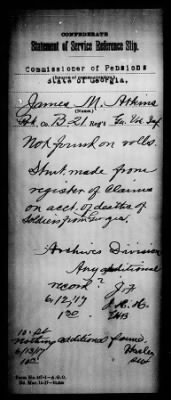 CONFEDERATE
Statement of Service Reference Slip.
Commissioner of Pensions
State of Georgia.
James M. Atkins
(Name.)
Co. B 21 Reg't Ga. Vol. Inf
Not found on rolls.
Stmt. made from
register of Claims
on acct. of deaths of
Soldiers from Georgia.
Archives Division
Any additional
record?
6/12/17
Nothing additional found
6/13/17
Form No. 447-1—A. G. O.